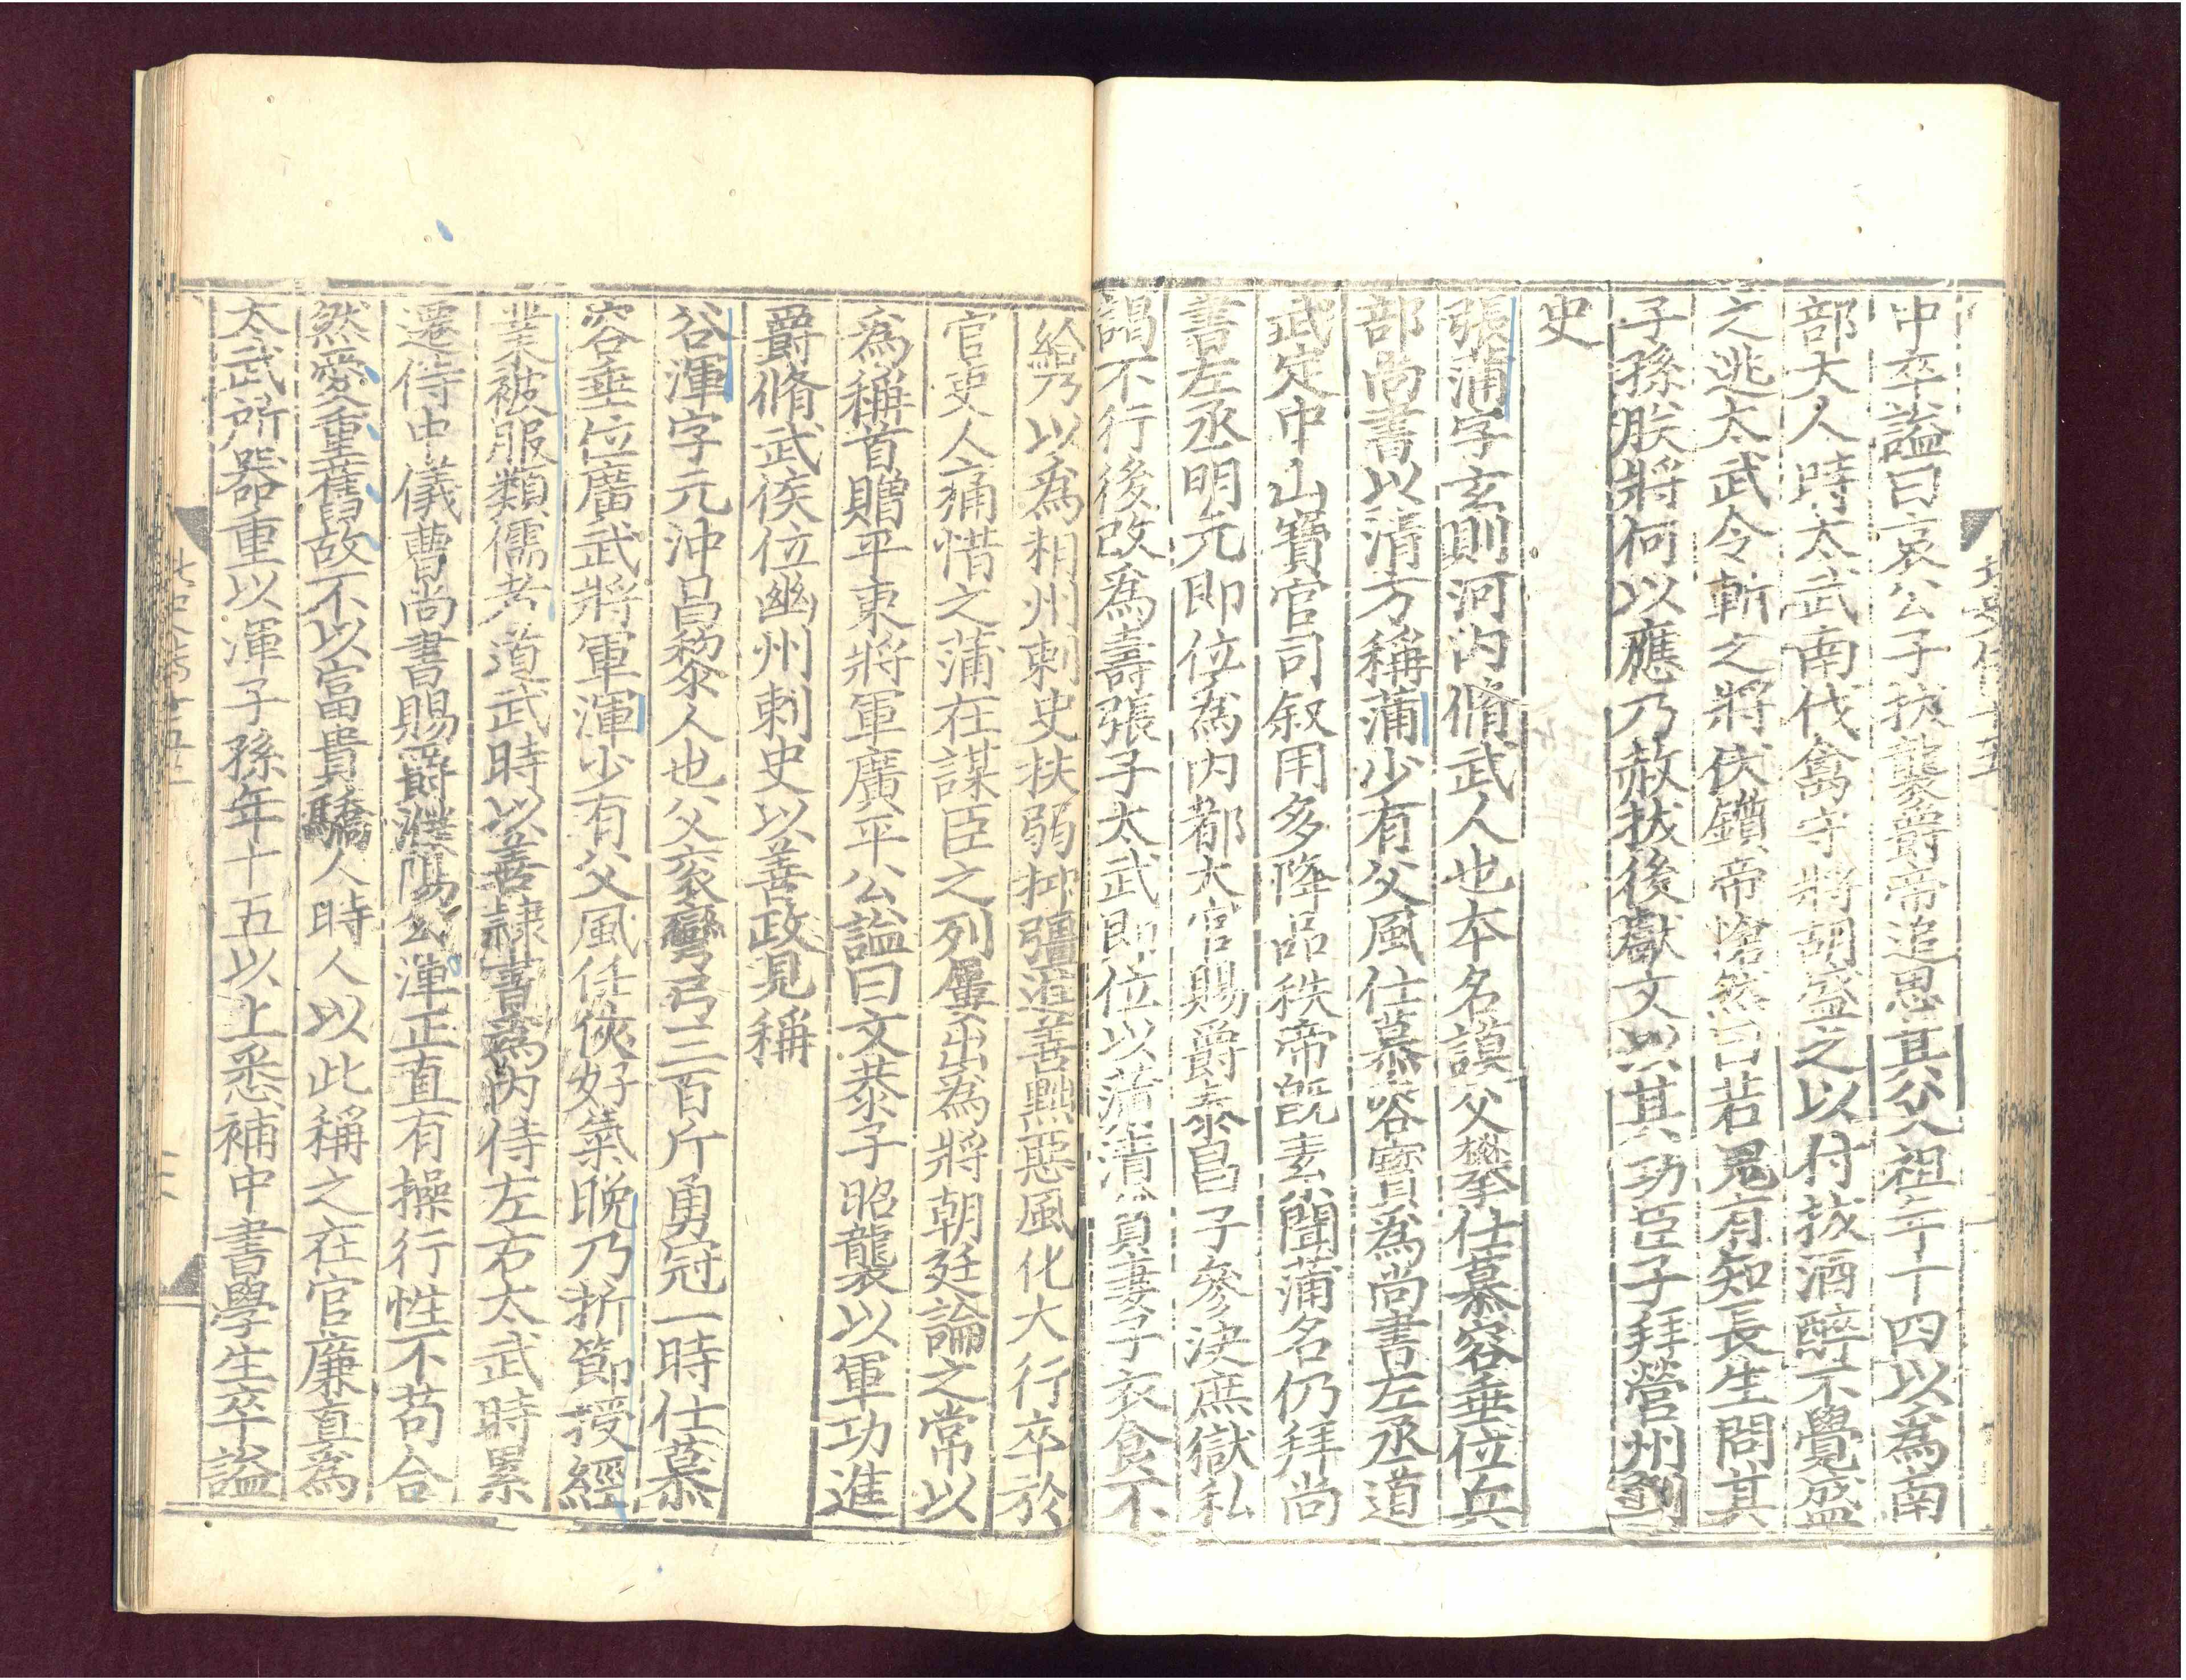 中卒謚曰哀公子拔襲爵帝追思其父祖年十四以為南
部大人時太武南伐禽守將胡盛之以付拔酒醉不覺盛
之逃太武令斬之將伏鑕帝愴然曰若鬼有知長生問其
子孫朕將何以應乃赦拔後獻文以其功臣子拜營州刺
史
張蒲字玄則河內脩武人也本名謨父攀仕慕容垂位兵
部尚書以清方稱蒲少有父風仕慕容寶爲尚書左丞道
武定中山寶官司叙用多降品秩帝旣素聞蒲名仍拜尚
書左丞明元即位爲內都大官賜爵泰昌子參決庶獄私
謁不行後改爲壽張子太武即位以蒲清貧妻子衣食不
給乃以爲相州刺史扶弱抑彊進善黜惡風化大行卒於
官吏人痛惜之蒲在謀臣之列屢出爲將朝廷論之常以
爲稱首贈平東將軍廣平公謚曰文恭子昭襲以軍功進
爵脩武侯位幽州刺史以善政見稱
谷渾字元沖昌黎人也父袞彎弓三百斤勇冠一時仕慕
容垂位廣武將軍渾少有父風任俠好氣晚乃折節授經
業被服類儒者道武時以善隷書爲內侍左右太武時累
遷侍中儀曹尚書賜爵濮陽公渾正直有操行性不苟合
然愛重舊故不以富貴驕人時人以此稱之在官廉直爲
太武所器重以渾子孫年十五以上悉補中書學生卒謚